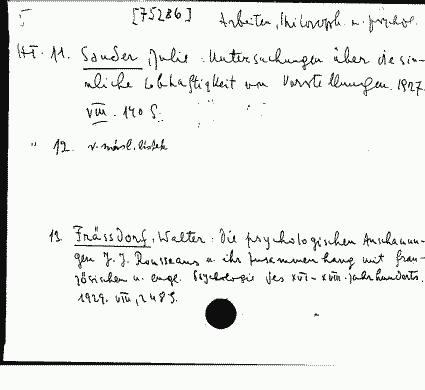 I [75286] Arbeiten, Philosoph. u. psychol.
HI. 11. Sander, Julie: Untersuchungen über die sin-
nliche Lebhaftigkeit von Vorstellungen. 1927.
VIII. 140 S.
" 12. v. násl. lístek
13. Frässdorf, Walter: Die psychologischen Anschauun-
gen J. J. Rousseaus u. ihr Zusammenhang mit fran-
zösischen u. engl. Psychologie des XVI-XVIII. Jahrhunderts.
1929. VIII, 248 S.